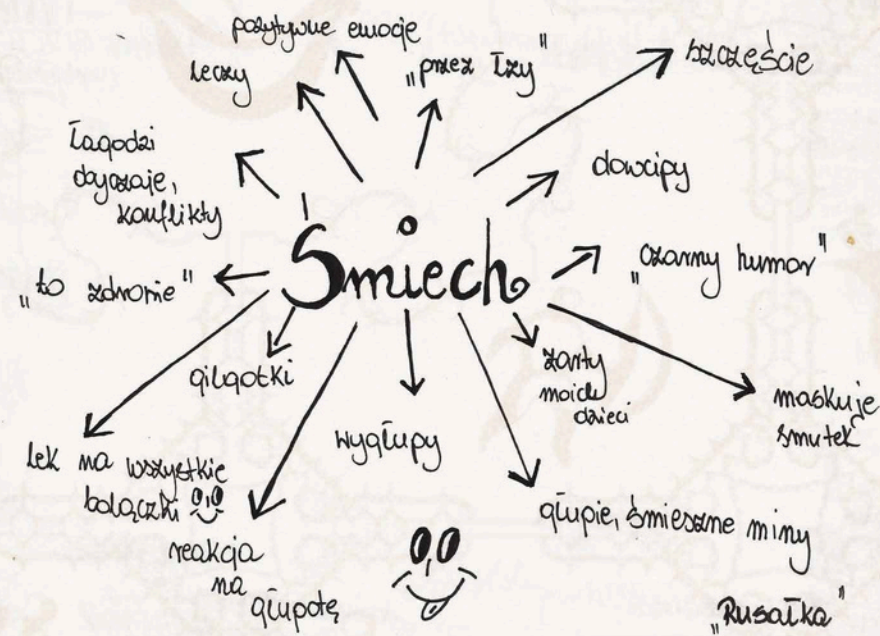 pozytywne emocje
leczy
"przez łzy"
szczęście
łagodzi
obyczaje,
konflikty
dowcipy
Śmiech
"czarny humor"
"to zdrowie"
gilgotki
żarty
moich
dzieci
maskuje
smutek
wygłupy
lek na wszystkie
bolączki
głupie, śmieszne miny
reakcja
na
głupotę
"Rusałka"